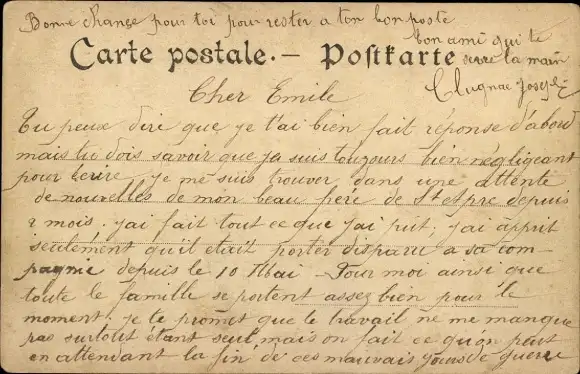 Bonne change pour toi pour rester a ton bon poste
bon ami qui te
serre la main
Clugnac Joseph
Carte postale. — Postkarte
Cher Emile
Tu peux dire que je t'ai bien fait réponse d'abord
mais tu dois savoir que je suis toujours bien négligeant
pour ecrire, je me suis trouver dans une attente
de nouvelles de mon beau pere de St epre depuis
2 mois. j'ai fait tout ce que j'ai put, j'ai apprit
seulement qu'il etait porter disparu a sa com-
pagnie depuis le 10 Mai - Pour moi ainsi que
toute le famille se portent assez bien pour le
moment. je te promet que le travail ne me manque
pas surtout étant seul mais on fait ce qu'on peut
en attendant la fin de ces mauvais jours de guerre